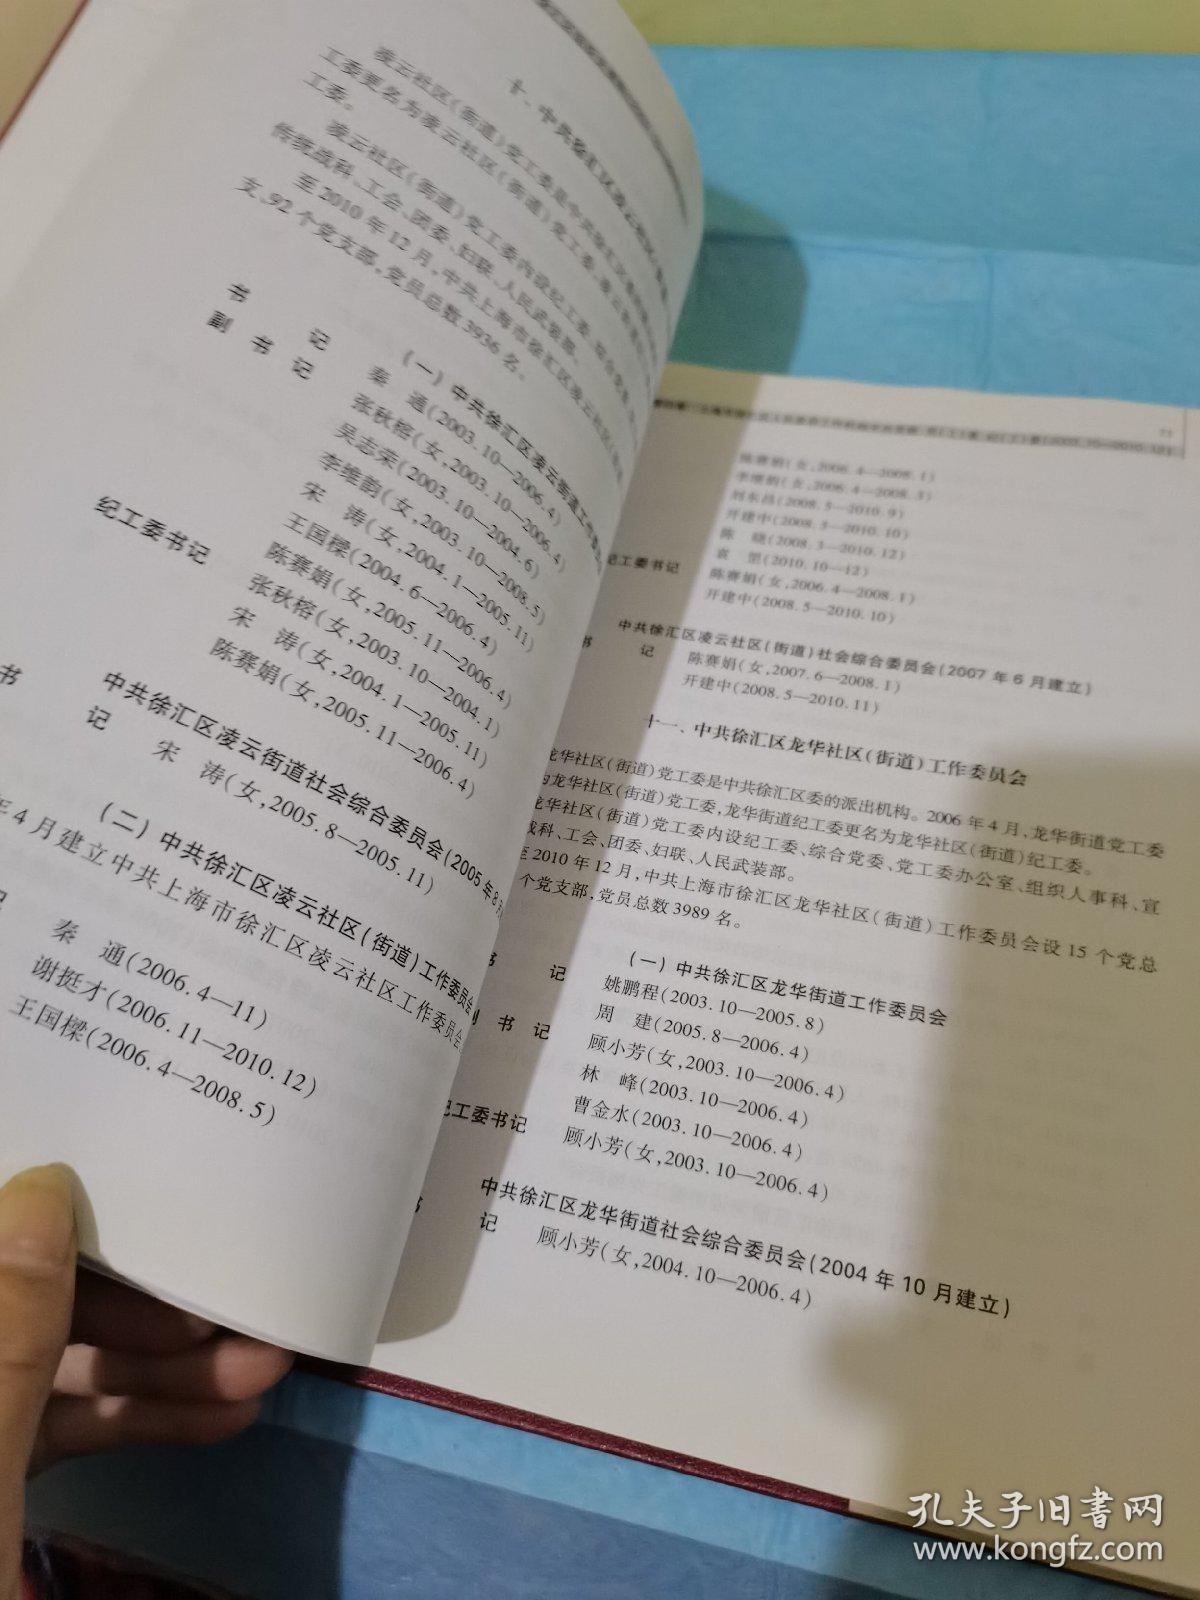 十、中共徐汇区凌云社区(街道)
凌云社区(街道)党工委是中共徐汇区委的派出
工委更名为凌云社区(街道)党工委,凌云街道纪
工委。
凌云社区(街道)党工委内设纪工委、综合党委、
传统战科、工会、团委、妇联、人民武装部。
至2010年12月,中共上海市徐汇区凌云社区(街道
支、92个党支部,党员总数3936名。
(一)中共徐汇区凌云街道工作委员会
书 记 秦 通(2003.10—2006.4)
副书记 张秋榕(女,2003.10—2006.4)
吴志荣(2003.10—2004.6)
李维韵(女,2003.10—2008.5)
宋 涛(女,2004.1—2005.11)
王国樑(2004.6—2006.4)
陈赛娟(女,2005.11—2006.4)
纪工委书记 张秋榕(女,2003.10—2004.1)
宋 涛(女,2004.1—2005.11)
陈赛娟(女,2005.11—2006.4)
中共徐汇区凌云街道社会综合委员会(2005年8月
书 记 宋 涛(女,2005.8—2005.11)
(二)中共徐汇区凌云社区(街道)工作委员会
年4月建立中共上海市徐汇区凌云社区工作委员会
记 秦 通(2006.4—11)
谢挺才(2006.11—2010.12)
王国樑(2006.4—2008.5)
陈赛娟(女,2006.4—2008.1)
李维韵(女,2006.4—2008.3)
刘东昌(2008.5—2010.9)
开建中(2008.5—2010.10)
陈 晓(2008.3—2010.12)
袁 罡(2010.10—12)
纪工委书记 陈赛娟(女,2006.4—2008.1)
开建中(2008.5—2010.10)
中共徐汇区凌云社区(街道)社会综合委员会(2007年6月建立)
书 记 陈赛娟(女,2007.6—2008.1)
开建中(2008.5—2010.11)
十一、中共徐汇区龙华社区(街道)工作委员会
龙华社区(街道)党工委是中共徐汇区委的派出机构。2006年4月,龙华街道党工委
为龙华社区(街道)党工委,龙华街道纪工委更名为龙华社区(街道)纪工委。
龙华社区(街道)党工委内设纪工委、综合党委、党工委办公室、组织人事科、宣
战科、工会、团委、妇联、人民武装部。
至2010年12月,中共上海市徐汇区龙华社区(街道)工作委员会设15个党总
个党支部,党员总数3989名。
(一)中共徐汇区龙华街道工作委员会
书 记 姚鹏程(2003.10—2005.8)
周 建(2005.8—2006.4)
副书记 顾小芳(女,2003.10—2006.4)
林 峰(2003.10—2006.4)
曹金水(2003.10—2006.4)
纪工委书记 顾小芳(女,2003.10—2006.4)
中共徐汇区龙华街道社会综合委员会(2004年10月建立)
书 记 顾小芳(女,2004.10—2006.4)
孔夫子旧书网
www.kongfz.com